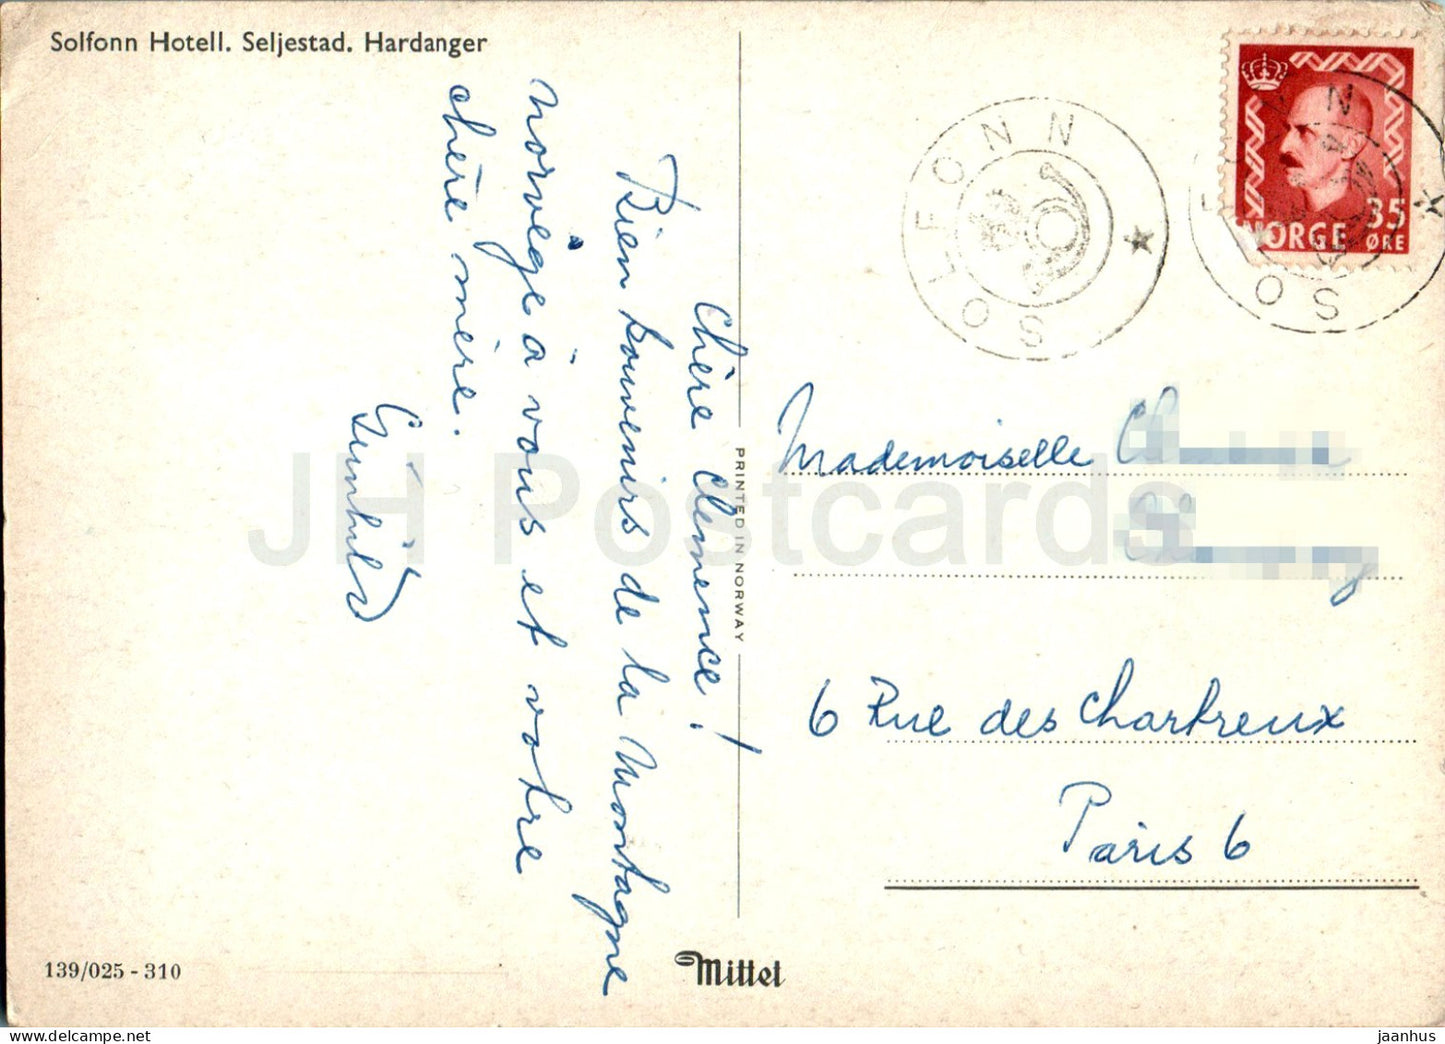 Solfonn Hotell. Seljestad. Hardanger
Chère Clemence!
Bien souvenirs de la montagne
norvège à vous et votre
chère mère.
Gunhild
PRINTED IN NORWAY
SOLFONN
SOLFONN
NORGE 35 ØRE
Mademoiselle
6 Rue des Chartreux
Paris 6
139/025 - 310
Mittet
JH Postcards
jaanhus